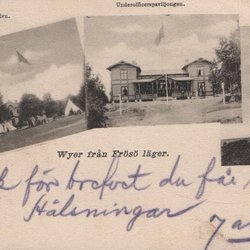 Underofficerspaviljongen.
Wyer från Frösö läger.
för brefvet du får
Hälsningar